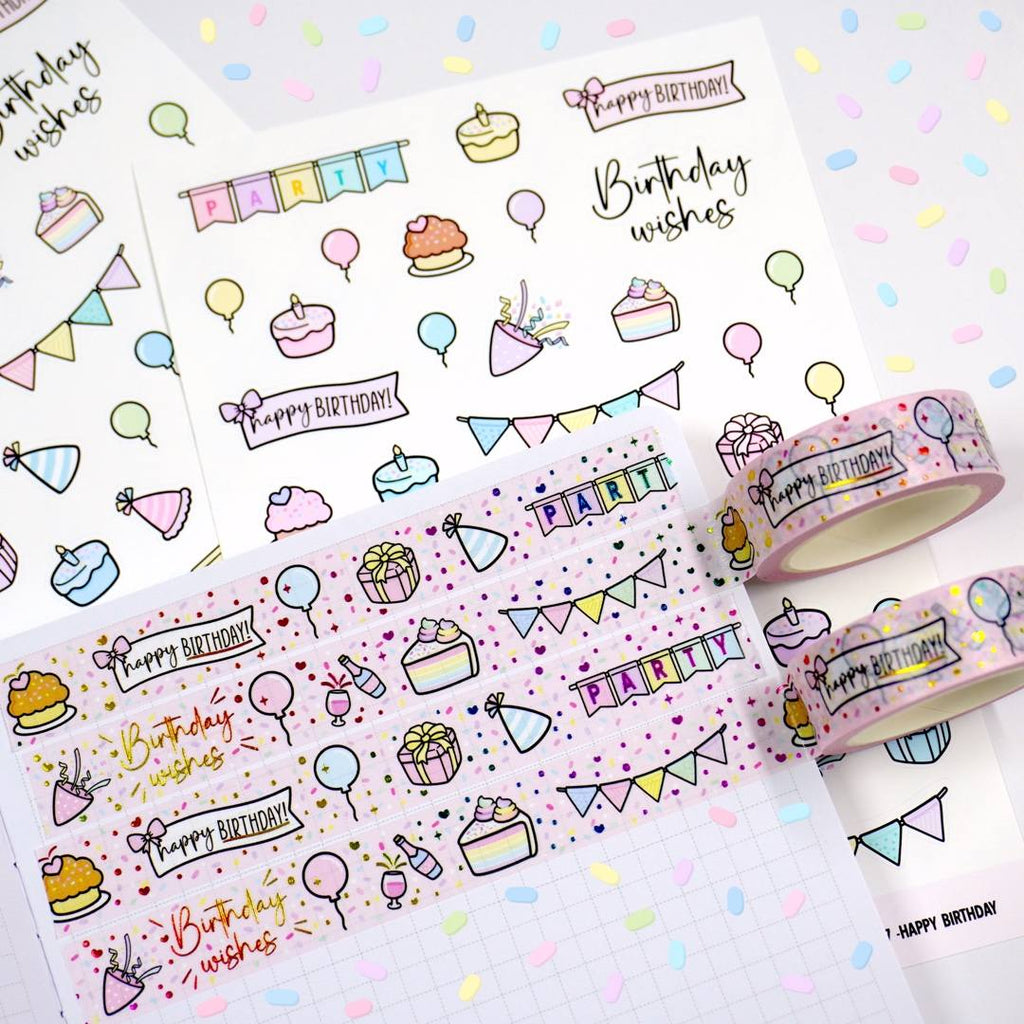 Birthday
wishes
happy BIRTHDAY!
PARTY
Birthday
wishes
happy BIRTHDAY!
PART
happy BIRTHDAY!
happy BIRTHDAY!
PARTY
happy BIRTHDAY!
Birthday
wishes
happy BIRTHDAY!
Birthday
wishes
7 -HAPPY BIRTHDAY